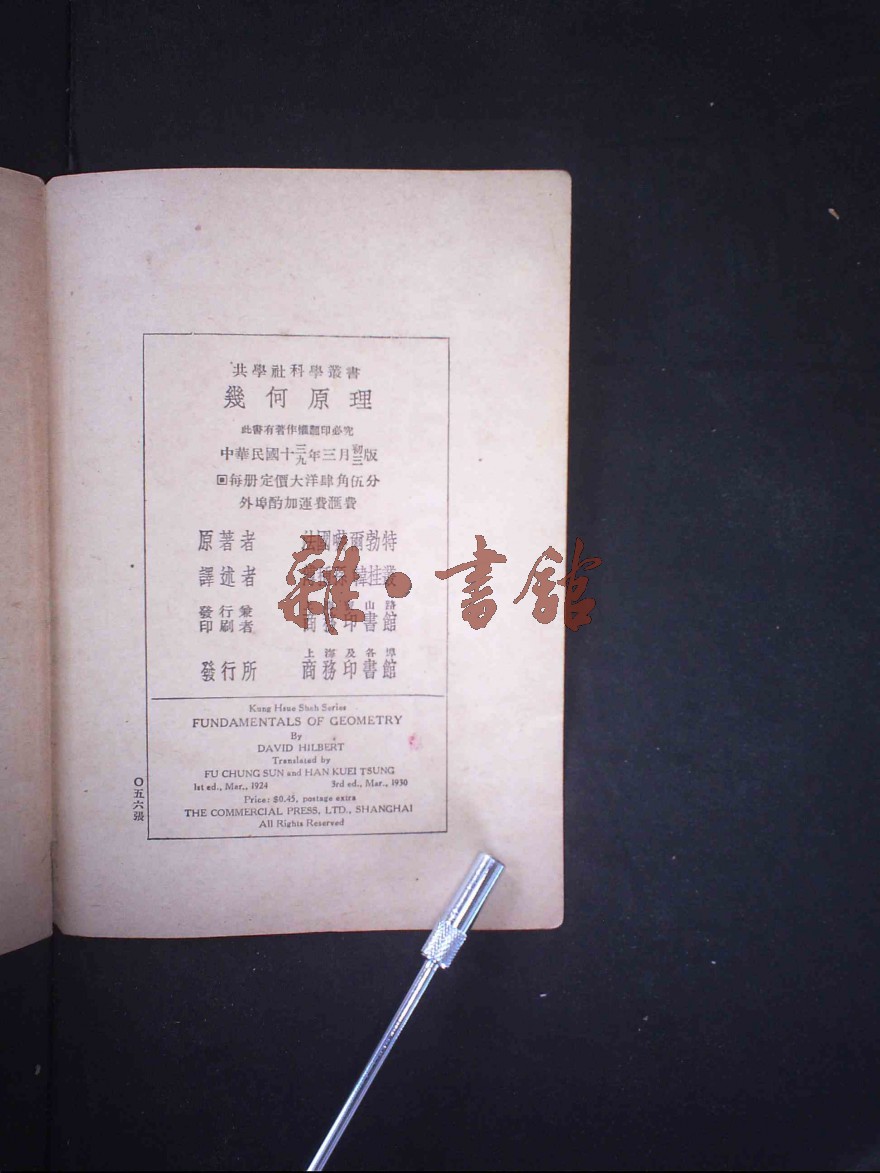 共學社科學叢書
幾何原理
此書有著作權翻印必究
中華民國十三九年三月初三版
回每册定價大洋肆角伍分
外埠酌加運費滙費
原著者 法國 爾勃特
譯述者 韓桂叢
發行兼印刷者 山路 商務印書館
上海及各埠
發行所 商務印書館
Kung Hsue Sheh Series
FUNDAMENTALS OF GEOMETRY
By
DAVID HILBERT
Translated by
FU CHUNG SUN and HAN KUEI TSUNG
1st ed., Mar., 1924 3rd ed., Mar., 1930
Price: $0.45, postage extra
THE COMMERCIAL PRESS, LTD., SHANGHAI
All Rights Reserved
〇五六張
雜·書館